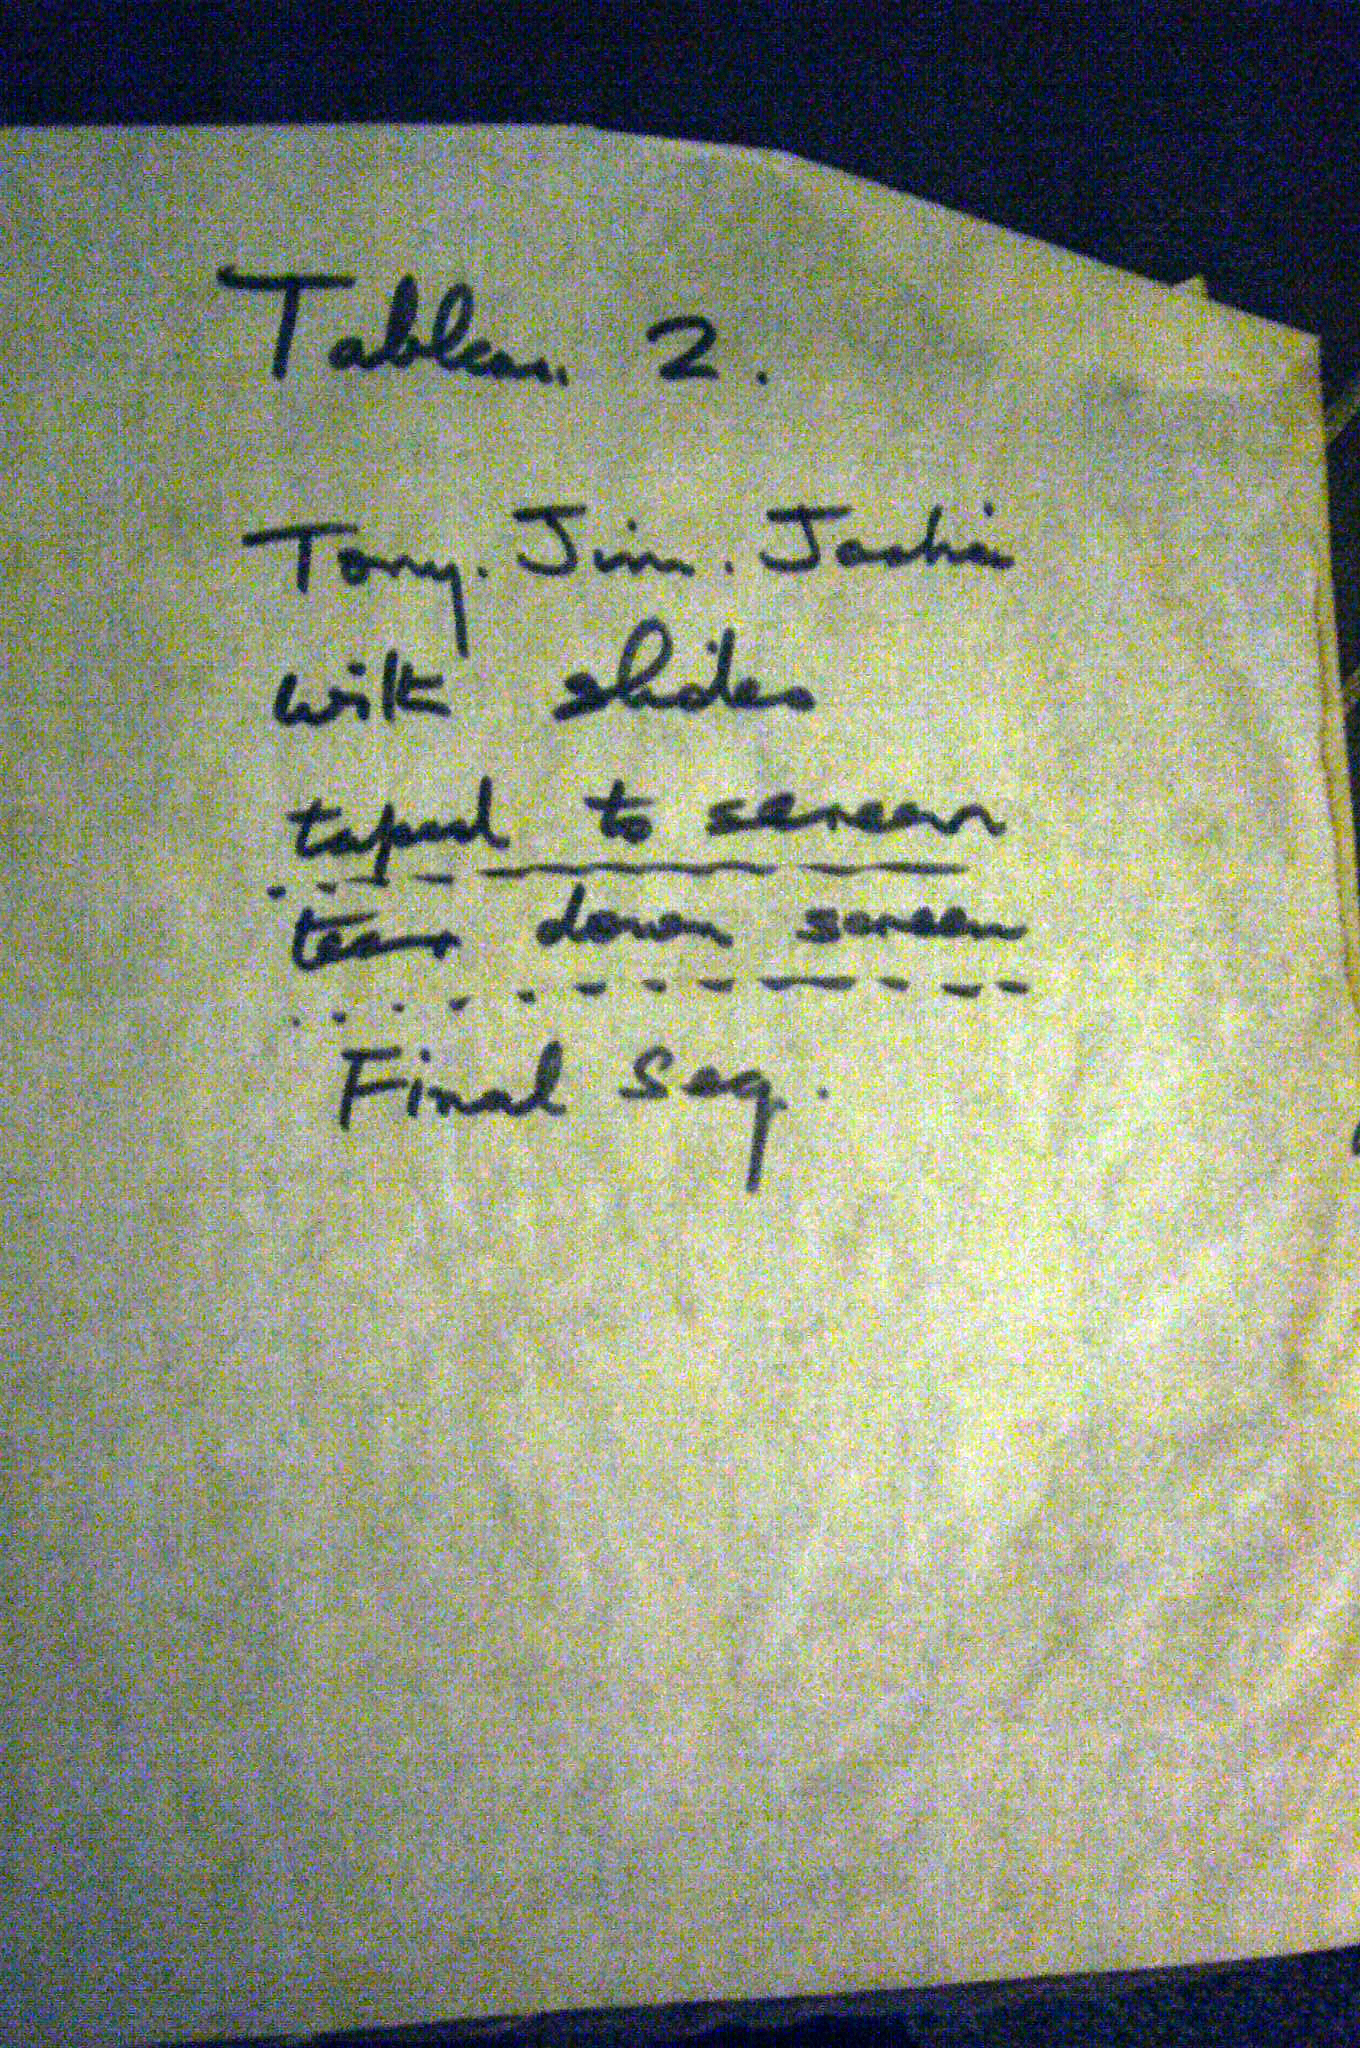 Tableau 2.
Tony. Jim. Jackie
with slides
taped to screen
tear down screen
Final Seq.